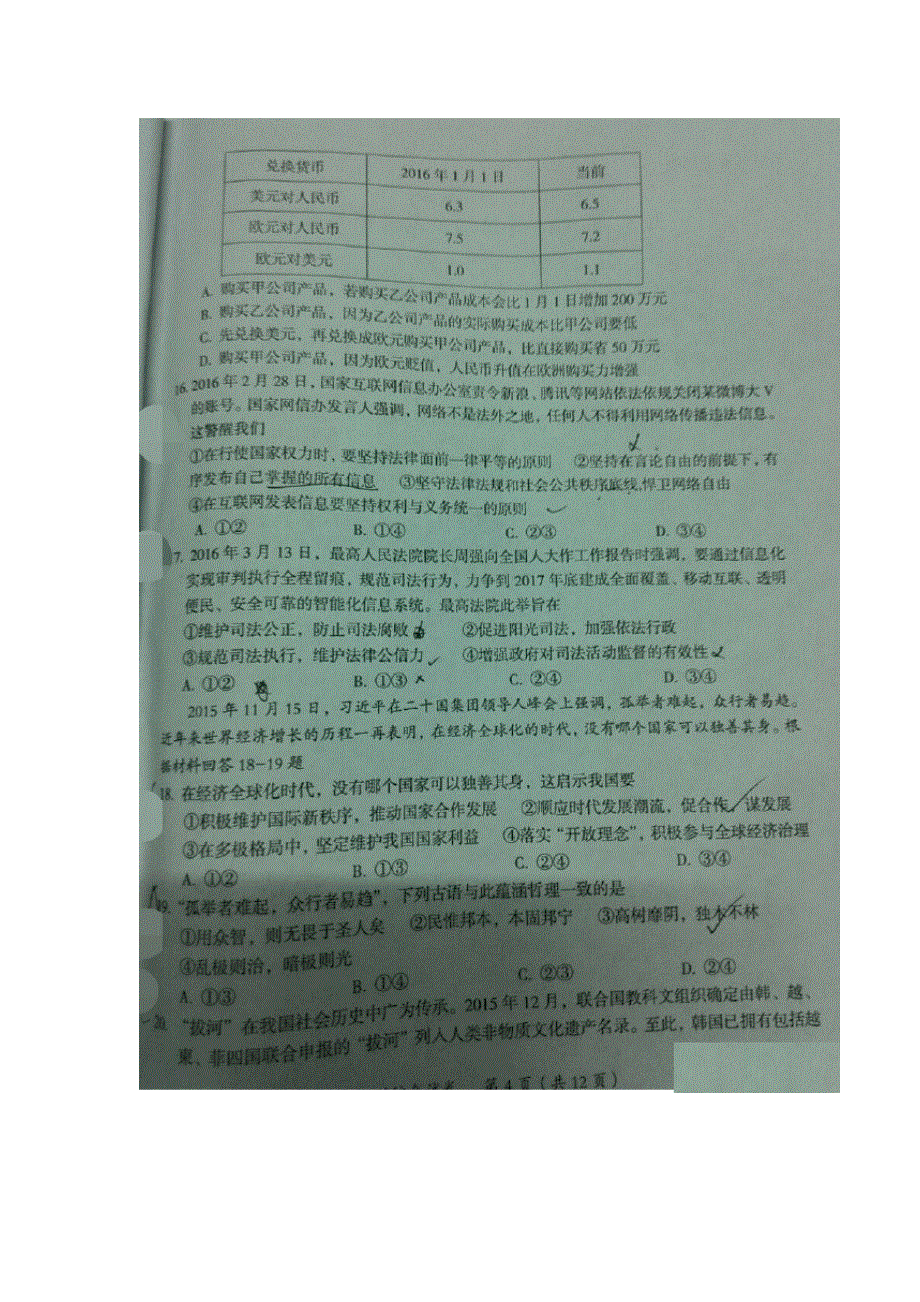 兑换货币 2016年1月1日 当前
美元对人民币 6.3 6.5
欧元对人民币 7.5 7.2
欧元对美元 1.0 1.1
A. 购买甲公司产品，若购买乙公司产品成本会比1月1日增加200万元
B. 购买乙公司产品，因为乙公司产品的实际购买成本比甲公司要低
C. 先兑换美元，再兑换成欧元购买甲公司产品，比直接购买省50万元
D. 购买甲公司产品，因为欧元贬值，人民币升值在欧洲购买力增强
16. 2016年2月28日，国家互联网信息办公室责令新浪、腾讯等网站依法依规关闭某微博大V
的账号。国家网信办发言人强调，网络不是法外之地，任何人不得利用网络传播违法信息。
这警醒我们
①在行使国家权力时，要坚持法律面前一律平等的原则 ②坚持在言论自由的前提下，有
序发布自己掌握的所有信息 ③坚守法律法规和社会公共秩序底线，悍卫网络自由
④在互联网发表信息要坚持权利与义务统一的原则
A. ①② B. ①④ C. ②③ D. ③④
7. 2016年3月13日，最高人民法院院长周强向全国人大作工作报告时强调，要通过信息化
实现审判执行全程留痕，规范司法行为，力争到2017年底建成全面覆盖、移动互联、透明
便民、安全可靠的智能化信息系统。最高法院此举旨在
①维护司法公正，防止司法腐败 ②促进阳光司法，加强依法行政
③规范司法执行，维护法律公信力 ④增强政府对司法活动监督的有效性
A. ①② B. ①③ C. ②④ D. ③④
2015年11月15日，习近平在二十国集团领导人峰会上强调，孤举者难起，众行者易趋。
近年来世界经济增长的历程一再表明，在经济全球化的时代，没有哪个国家可以独善其身。根
据材料回答18-19题
18. 在经济全球化时代，没有哪个国家可以独善其身，这启示我国要
①积极维护国际新秩序，推动国家合作发展 ②顺应时代发展潮流，促合作，谋发展
③在多极格局中，坚定维护我国国家利益 ④落实“开放理念”，积极参与全球经济治理
A. ①② B. ①③ C. ②④ D. ③④
19. “孤举者难起，众行者易趋”，下列古语与此蕴涵哲理一致的是
①用众智，则无畏于圣人矣 ②民惟邦本，本固邦宁 ③高树靡阴，独木不林
④乱极则治，暗极则光
A. ①③ B. ①④ C. ②③ D. ②④
“拔河”在我国社会历史中广为传承。2015年12月，联合国教科文组织确定由韩、越、
柬、菲四国联合申报的“拔河”列入人类非物质文化遗产名录。至此，韩国已拥有包括越
第4页（共12页）